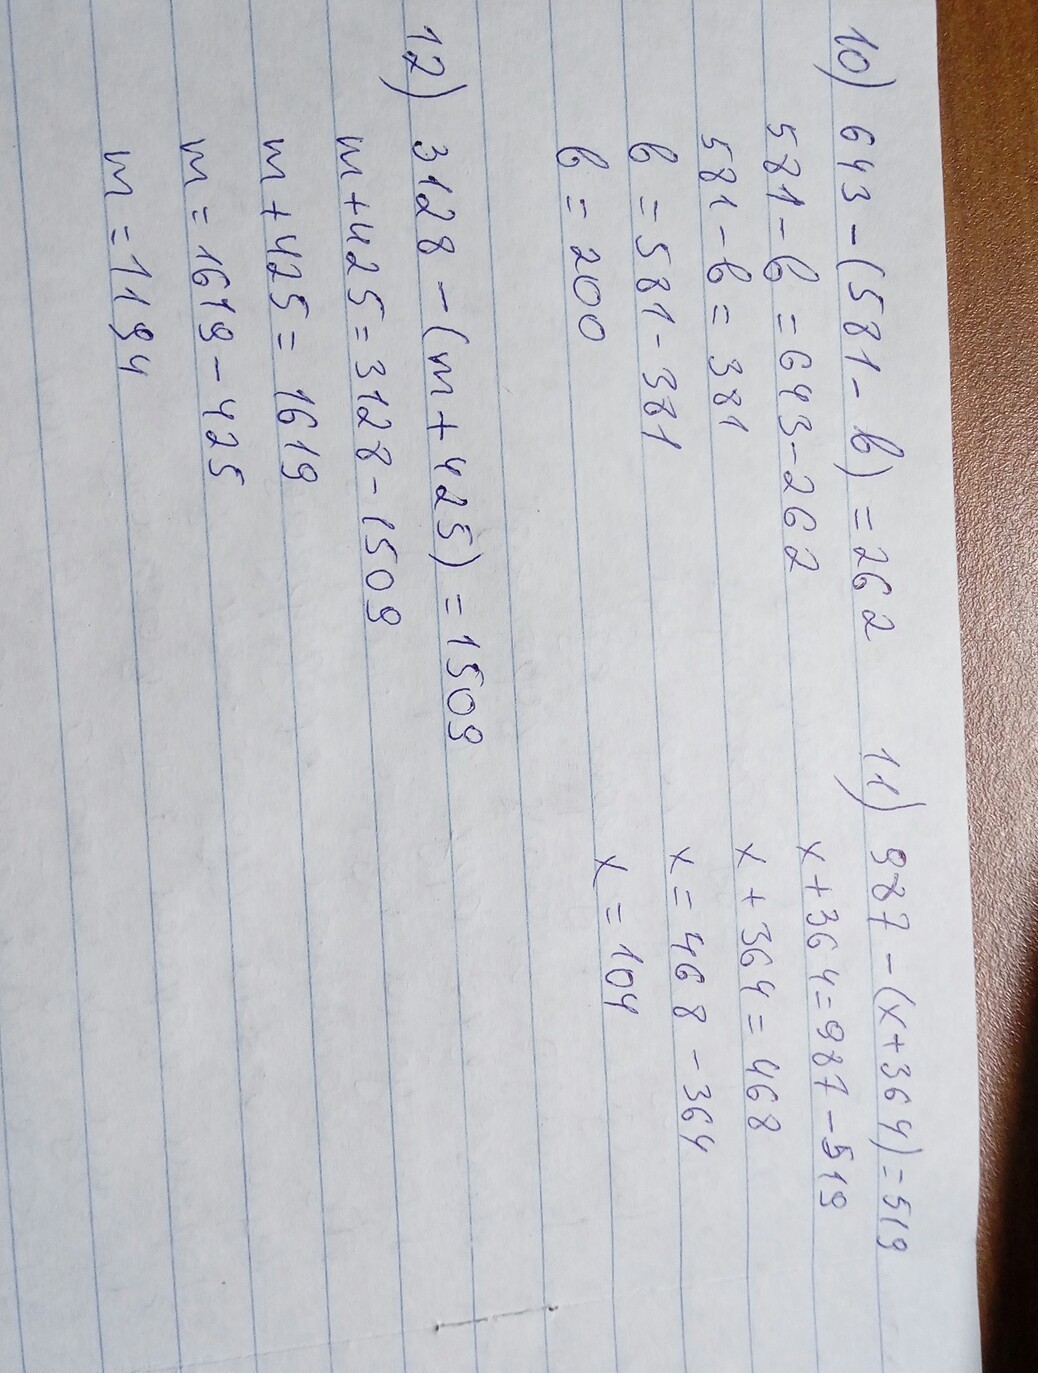 10) 643 - (581 - b) = 262
581 - b = 643 - 262
581 - b = 381
b = 581 - 381
b = 200
11) 987 - (x + 364) = 519
x + 364 = 987 - 519
x + 364 = 468
x = 468 - 364
x = 104
12) 3128 - (m + 425) = 1509
m + 425 = 3128 - 1509
m + 425 = 1619
m = 1619 - 425
m = 1194